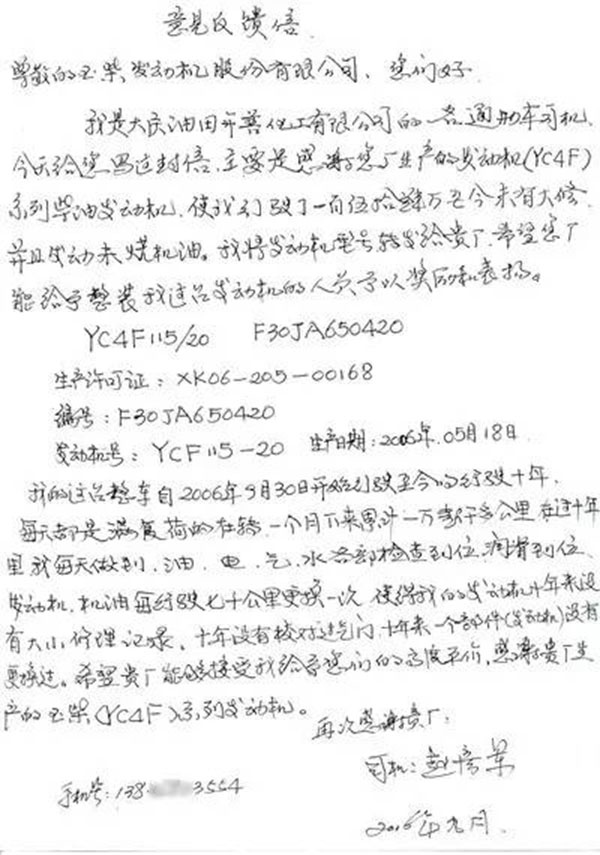 意见反馈信
尊敬的玉柴发动机股份有限公司、您们好
我是大庆油田开普化工有限公司的一名通勤车司机、
今天给您写这封信、主要是感谢您厂生产的发动机(YC4F)
系列柴油发动机、使我们驶了一百伍拾 万至今未有大修、
并且发动未烧机油。我将发动机型号转发给贵厂、希望您厂
能给予整装我这台发动机的人员予以奖励和表扬。
YC4F115/20 F30JA650420
生产许可证：XK06-205-00168
编号：F30JA650420
发动机号：YCF115-20 生产日期：2006年.05月18日
我的这台整车自2006年9月30日开始行驶至今以行驶十年、
每天都是满负荷的在转、一个月下来累计一万 千多公里 在这十年
里我每天做到、油、电、气、水各部检查到位、润滑到位、
发动机、机油每行驶七千公里更换一次 使得我的发动机十年来没
有大小修理记录、十年没有校对过气门、十年来一个部件(发动机)没有
更换过。希望贵厂能够接受我给予您们的高度评价，感谢贵厂生
产的玉柴(YC4F)系列发动机。
再次感谢贵厂、
司机：赵
手机号：138 3554
2016年九月.